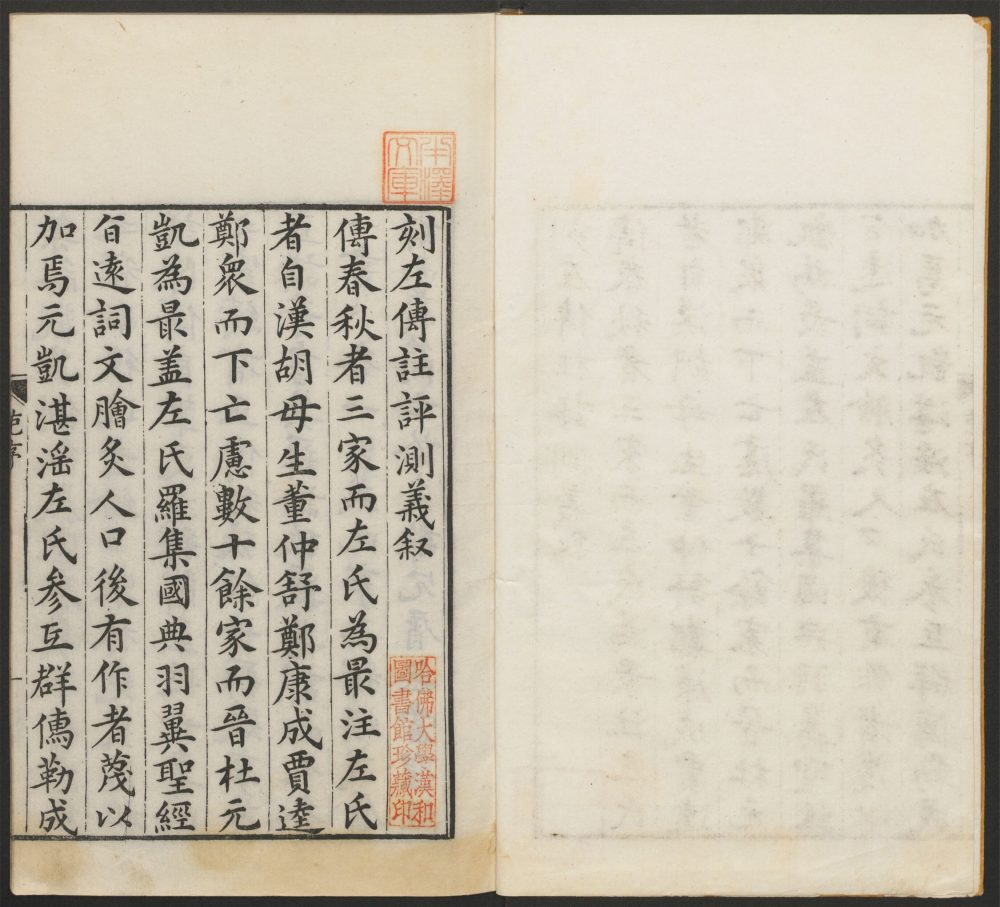 刻左傳註評測義叙
傳春秋者三家而左氏為最注左氏
者自漢胡母生董仲舒鄭康成賈逵
鄭衆而下亡慮數十餘家而晉杜元
凱為最盖左氏羅集國典羽翼聖經
㫖逺詞文膾炙人口後有作者蔑以
加焉元凱湛滛左氏参互群儒勒成
序
一
哈佛大學漢和
圖書館珍藏印